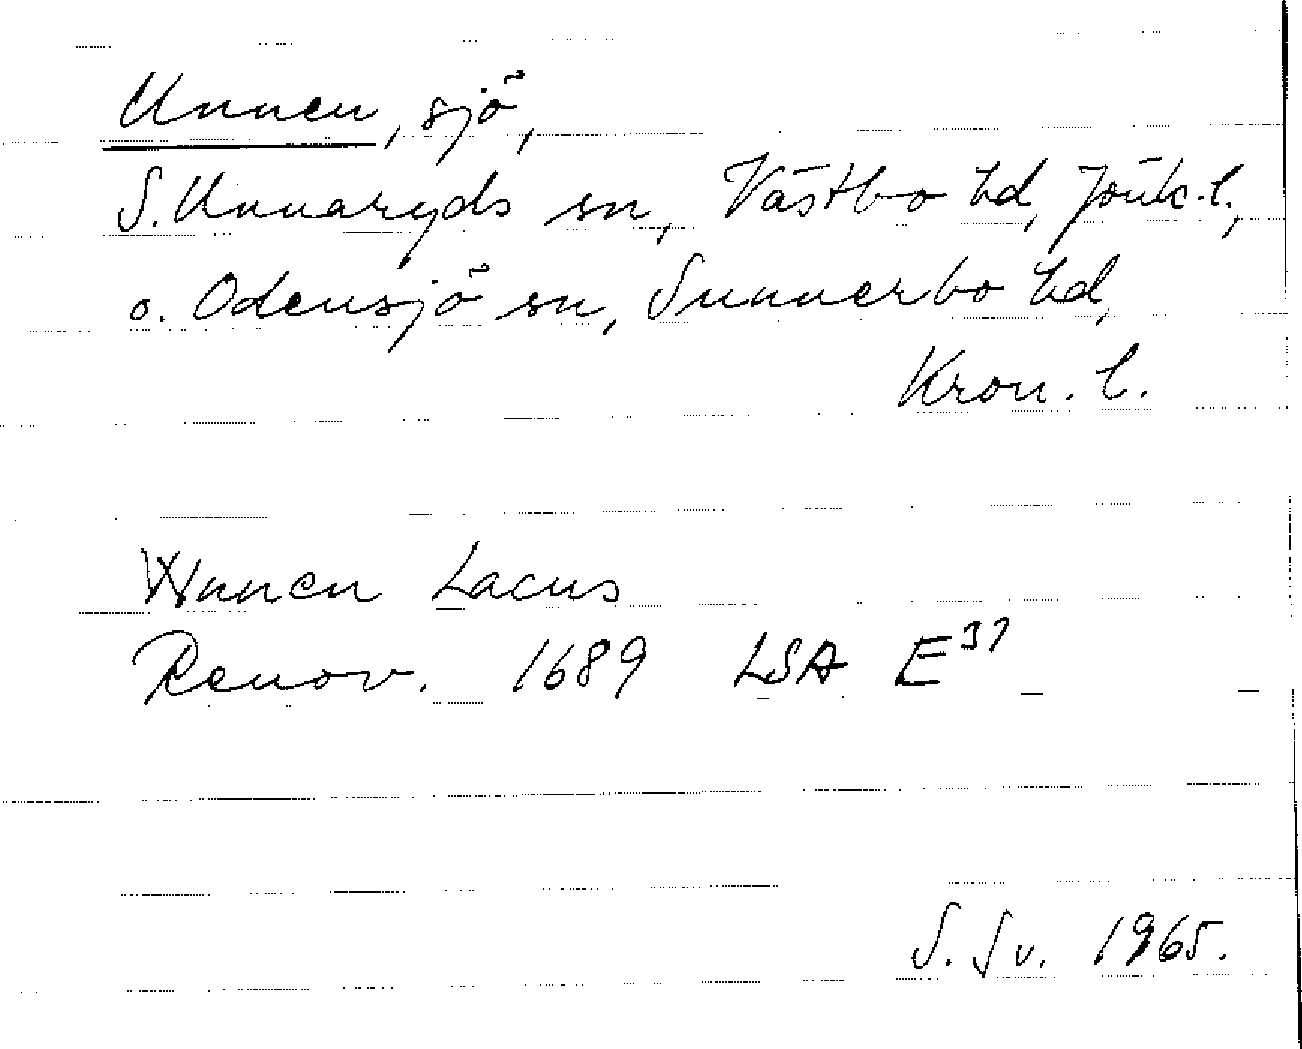 Unnen, sjö,
S. Unnaryds sn, Västbo hd, Jönk. l.,
o. Odensjö sn, Sunnerbo hd,
Kron. l.
Wnnen Lacus
Renov. 1689 LSA E 37
S. Sv. 1965.